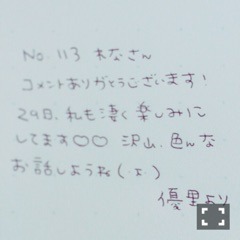 No. 113 木なさん
コメントありがとうございます!
29日、私も凄く楽しみに
してます♡♡ 沢山、色んな
お話しようね(. x .)
優里より